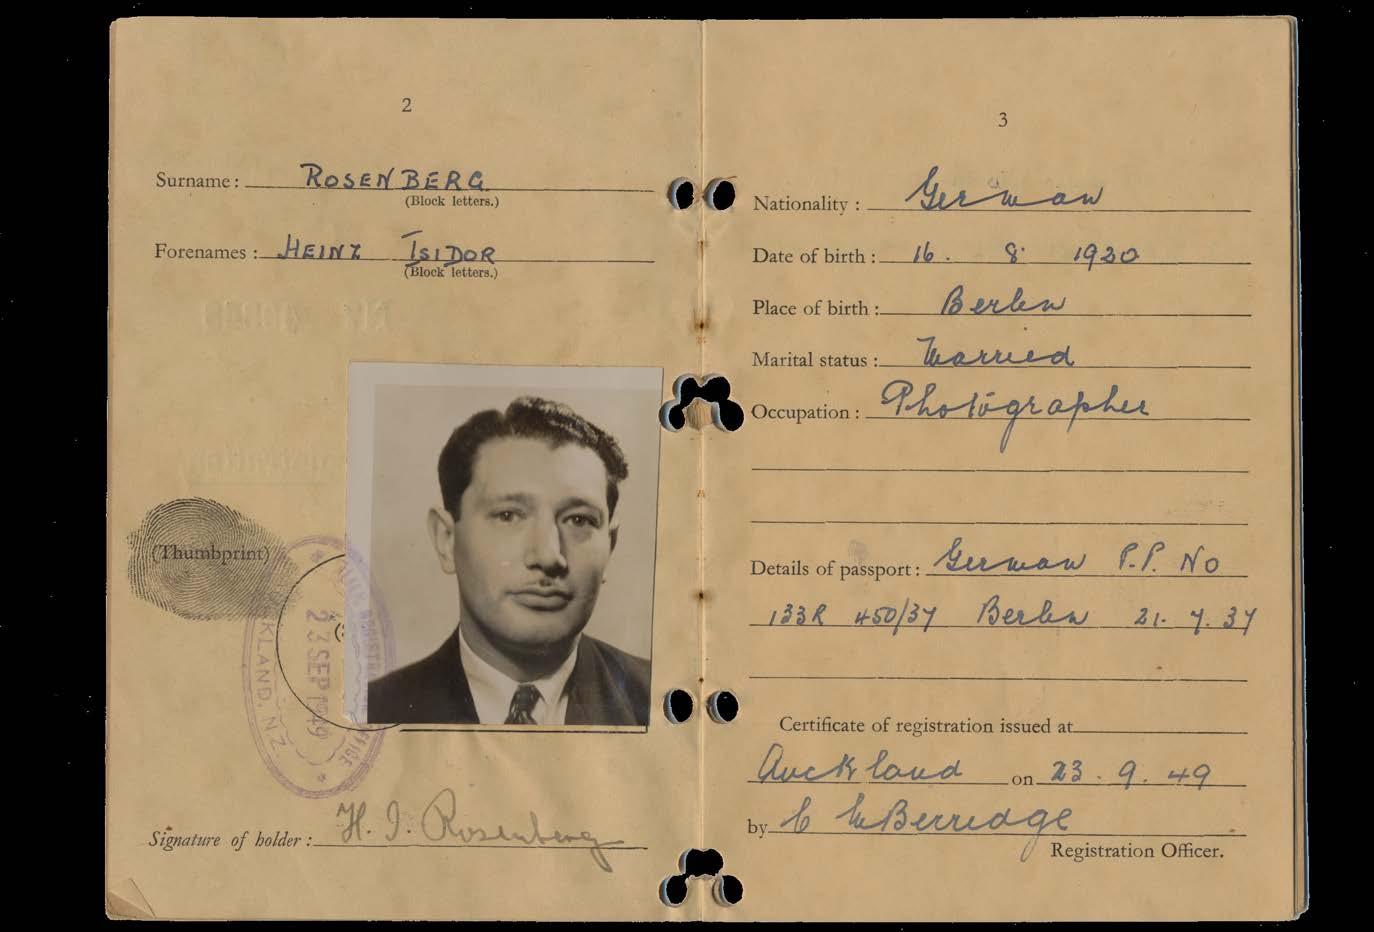 2
Surname: ROSENBERG
(Block letters.)
Forenames: HEINZ ISIDOR
(Block letters.)
(Thumbprint)
23 SEP 1949
KLAND, N.Z.
Signature of holder: H. I. Rosenberg
3
Nationality: German
Date of birth: 16. 8. 1920
Place of birth: Berlin
Marital status: Married
Occupation: Photographer
Details of passport: German P.P. No
133R 450/37 Berlin 21. 7. 37
Certificate of registration issued at
Auckland on 23. 9. 49
by Berredge
Registration Officer.